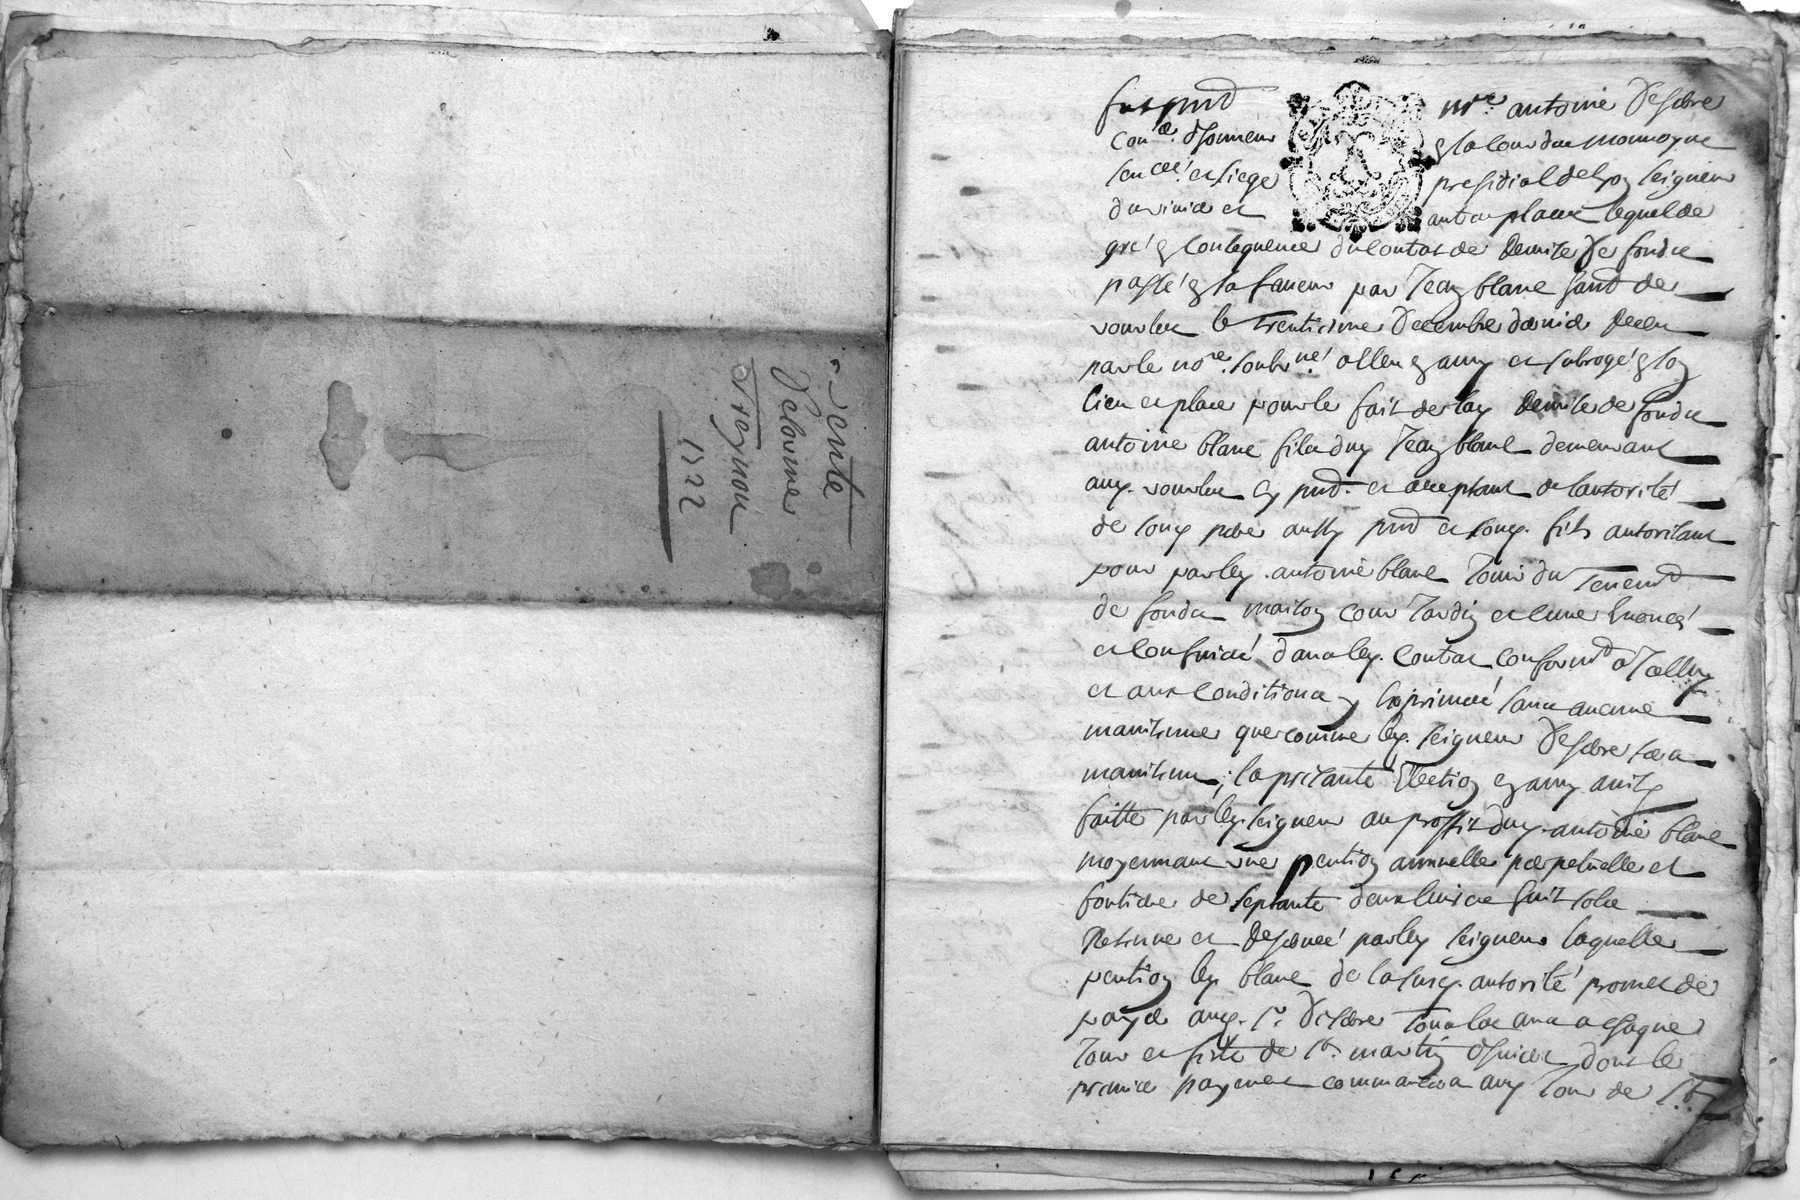 vente
Delorine
Treynou
1722
fut pnt mre antoine Deschre
Coner d'honneur en la Cour des monnoyes
senceé et siege presidial de lyon seigneur
du et autres places lequel de
gré en consequence du contat de remise de fondz
passé en sa faveur par Jean blanc grand de
vourles le trentieme Decembre dernier receu
par le nore soubzné a esleu en amy et subrogé en son
lieu et place pour le fait de lad remise de fondz
antoine blanc filz dud Jean blanc demeurant
aud. vourles cy pnt. et acceptant de l'autorité
de soud pere aussy pnt et soud. filz autorisant
pour par led. antoine blanc Jouir du Tenement
de fondz maison cour Jardin et
et confiné dans led. contat conformt a Icelluy
et aux conditions y Exprimées sans aucune
maintenue que comme led. seigneur Deschre sera
maintenu; la présante Election en amy ainsy
faitte par led. seigneur au proffit dud. antoine blanc
moyennant une pention annuelle perpetuelle et
fontiere de septante deux livres huit solz
Retenue et reservée par led seigneur laquelle
pention led blanc de la susd. autorité promet de
payer aud. sr. Deschre tous les ans a chaque
Jour et feste de st. martin d'hiver dont le
premier payement commancera aud Jour de st